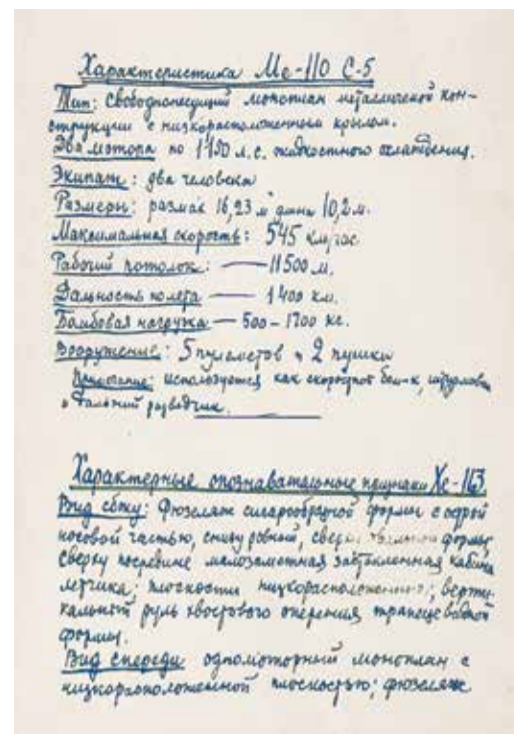 Характеристика Ме-110 С-5
Тип: Свободнонесущий моноплан металлической кон-
струкции с низкорасположенным крылом.
Два мотора по 1150 л.с. жидкостного охлаждения.
Экипаж: два человека
Размеры: размах 16,23 м длина 10,2 м.
Максимальная скорость: 545 км/час
Рабочий потолок: — 11500 м.
Дальность полета — 1400 км.
Бомбовая нагрузка — 500-1700 кг.
Вооружение: 5 пулеметов и 2 пушки
Примечание: используется как скоростной бом-к, штурмовик
и дальний разведчик.
Характерные опознавательные признаки Хе-113
Вид сбоку: Фюзеляж сигарообразной формы с острой
носовой частью, снизу ровный, сверху формы
Сверху посредине малозаметная застекленная кабина
летчика; плоскости низкорасположенные; верти-
кальный руль хвостового оперения трапецевидной
формы.
Вид спереди одномоторный моноплан с
низкорасположенной плоскостью; фюзеляж